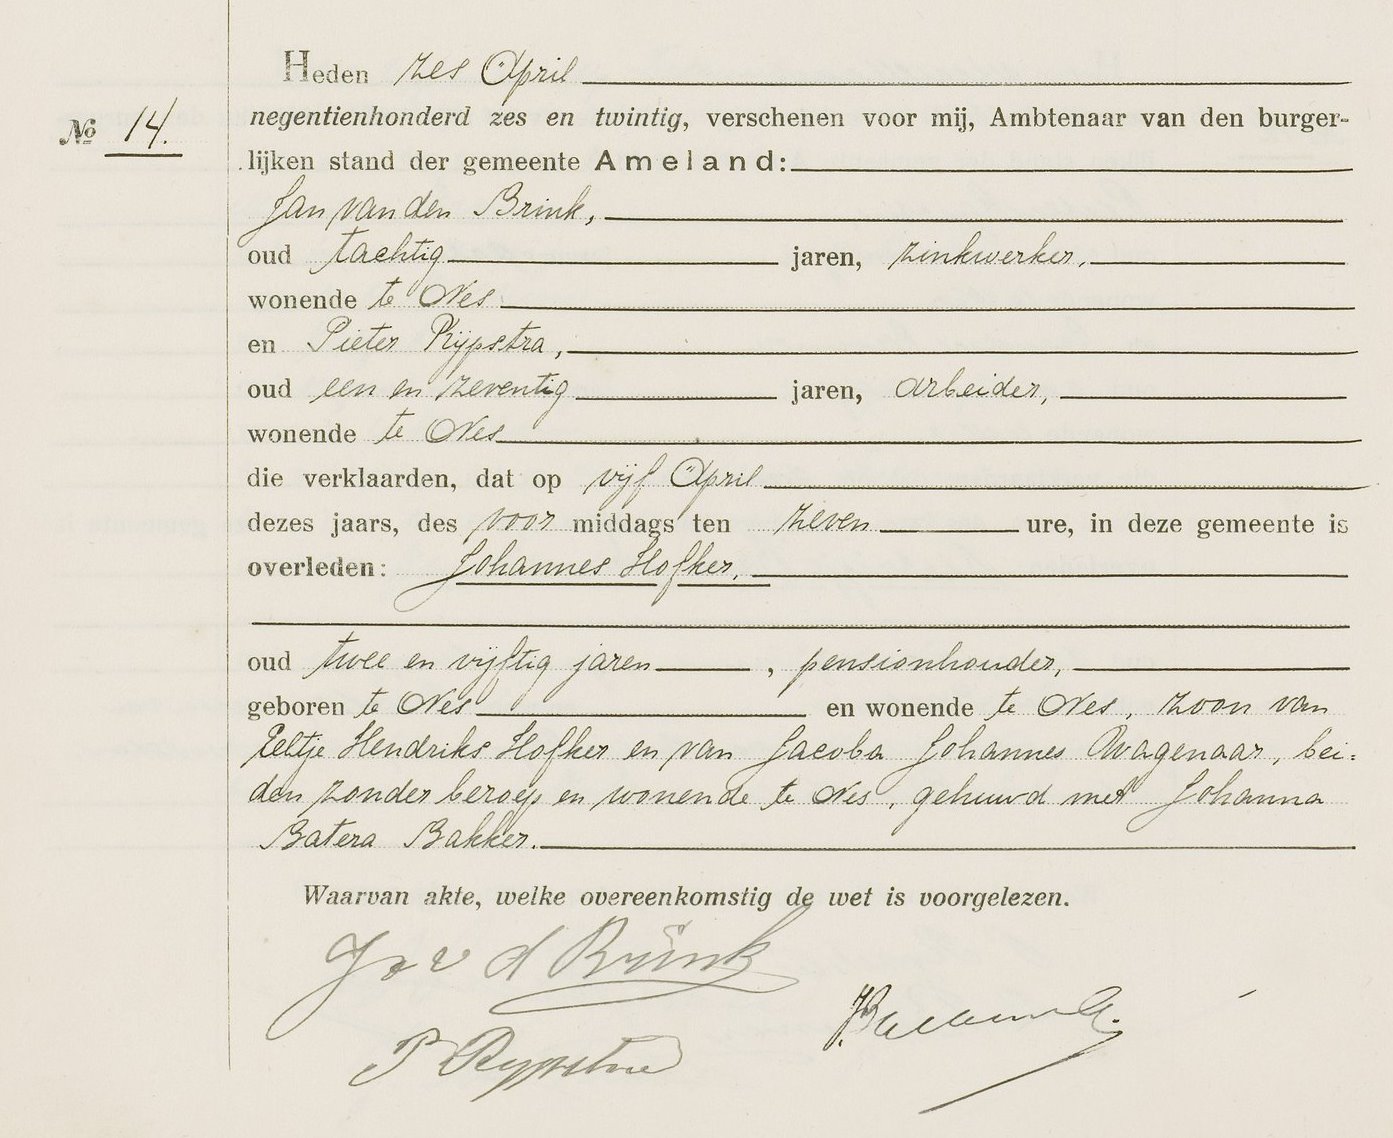 Heden zes April
№ 14.
negentienhonderd zes en twintig, verschenen voor mij, Ambtenaar van den burger-
lijken stand der gemeente Ameland:
Jan van den Brink,
oud tachtig jaren, zinkwerker,
wonende te Nes
en Pieter Rijpstra,
oud een en zeventig jaren, arbeider,
wonende te Nes
die verklaarden, dat op vijf April
dezes jaars, des voor middags ten zeven ure, in deze gemeente is
overleden: Johannes Hofker,
oud twee en vijftig jaren, pensionhouder,
geboren te Nes en wonende te Nes, zoon van
Eeltje Hendriks Hofker en van Jacoba Johannes Wagenaar, bei-
den zonder beroep en wonende te Nes, gehuwd met Johanna
Batera Bakker.
Waarvan akte, welke overeenkomstig de wet is voorgelezen.
v d Brink
P Rypstra